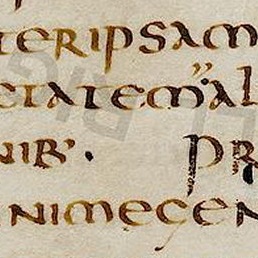 teripsam
etatem al
nib·
pr
nimegen